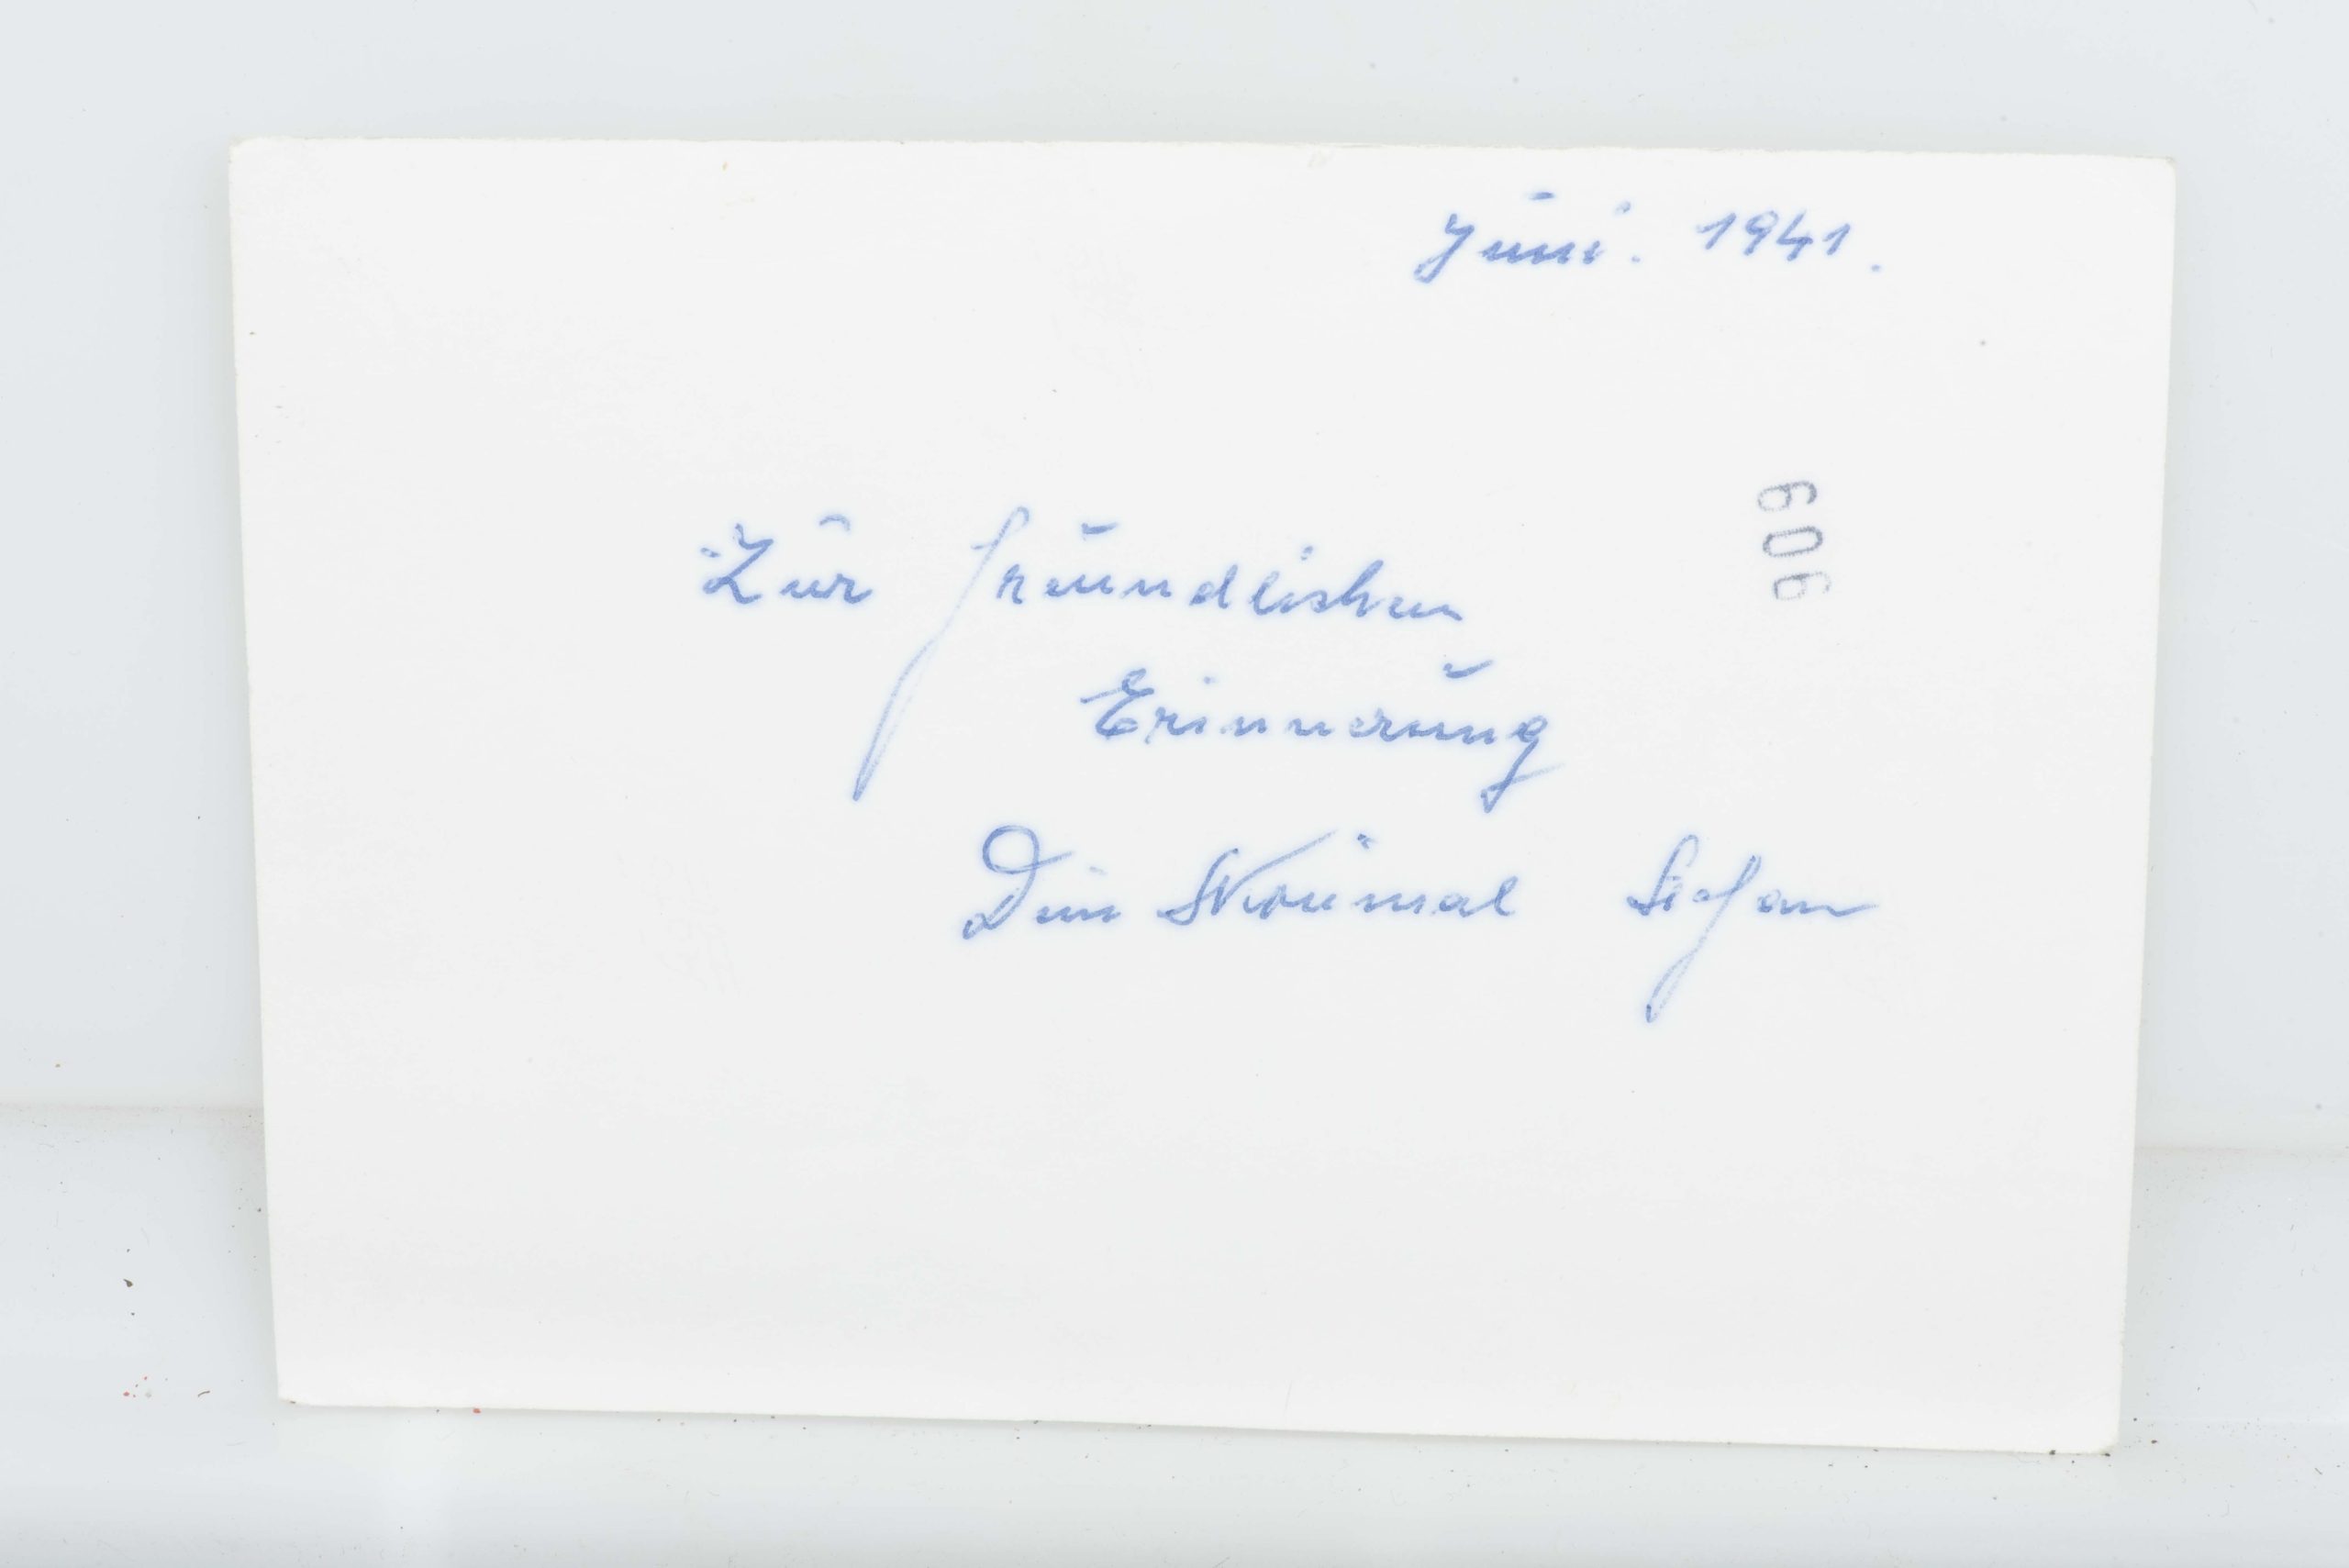 Juni. 1941.
606
Zur freundlichen
Erinnerung
Dein Stefan